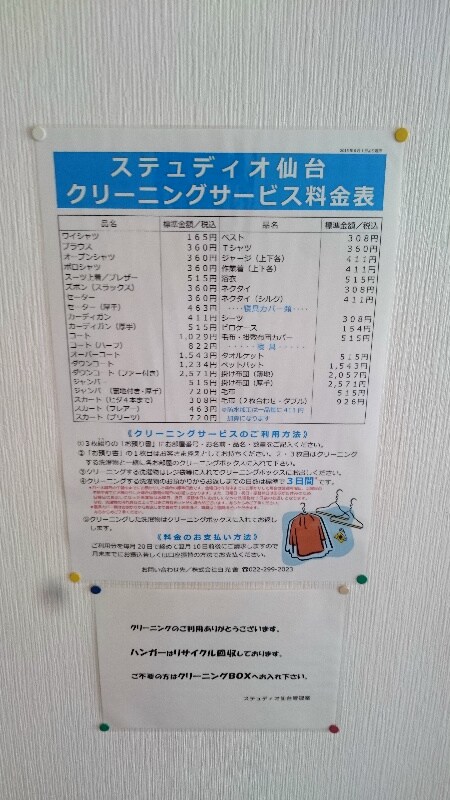 ステュディオ仙台
クリーニングサービス料金表
品名 標準金額／税込 品名 標準金額／税込
ワイシャツ 165円 ベスト 308円
ブラウス 360円 Tシャツ 360円
オープンシャツ 360円 ジャージ（上下各） 411円
ポロシャツ 360円 作業着（上下各） 411円
スーツ上着／ブレザー 515円 浴衣 515円
ズボン（スラックス） 360円 ネクタイ 308円
セーター 360円 ネクタイ（シルク） 411円
セーター（厚手） 463円 ‥‥寝具カバー類‥‥
カーディガン 411円 シーツ 308円
カーディガン（厚手） 515円 ピロケース 154円
コート 1,029円 毛布・掛敷布団カバー 515円
コート（ハーフ） 822円 ‥‥‥寝具‥‥‥
オーバーコート 1,543円 タオルケット 515円
ダウンコート 1,234円 ベットパット 1,543円
ダウンコート（ファー付き） 2,571円 掛け布団 2,057円
ジャンバー 515円 掛け布団（厚手） 2,571円
ジャンバー（裏地付き・厚手） 720円 毛布 515円
スカート（ヒダ4本まで） 308円 毛布（2枚合わせ・ダブル） 926円
スカート（フレアー） 463円 ※防水加工は一品毎に411円
スカート（プリーツ） 720円 加算になります
《クリーニングサービスのご利用方法》
①3枚綴りの「お預り書」にお部屋番号・お名前・品名・数量をご記入ください。
②「お預り書」の1枚目はお客さま控えとしてお持ちください。2・3枚目はクリーニング
する洗濯物と一緒に各お部屋のクリーニングボックスに入れて下さい。
③クリーニングする洗濯物はレジ袋等に入れてクリーニングボックスにお出しください。
④クリーニングする洗濯物のお預かりからお返しまでの日数は標準で3日間です。
⑤クリーニングした洗濯物はクリーニングボックスに入れてお返し
します。
《料金のお支払い方法》
ご利用分を毎月20日で締めて翌月10日前後にご請求しますので
月末までにお振込若しくは口座振替の方法でお支払ください。
お問い合わせ先／株式会社 ☎022-299-2023
クリーニングのご利用ありがとうございます。
ハンガーはリサイクル回収しております。
ご不要の方はクリーニングBOXへお入れ下さい。
ステュディオ仙台管理室